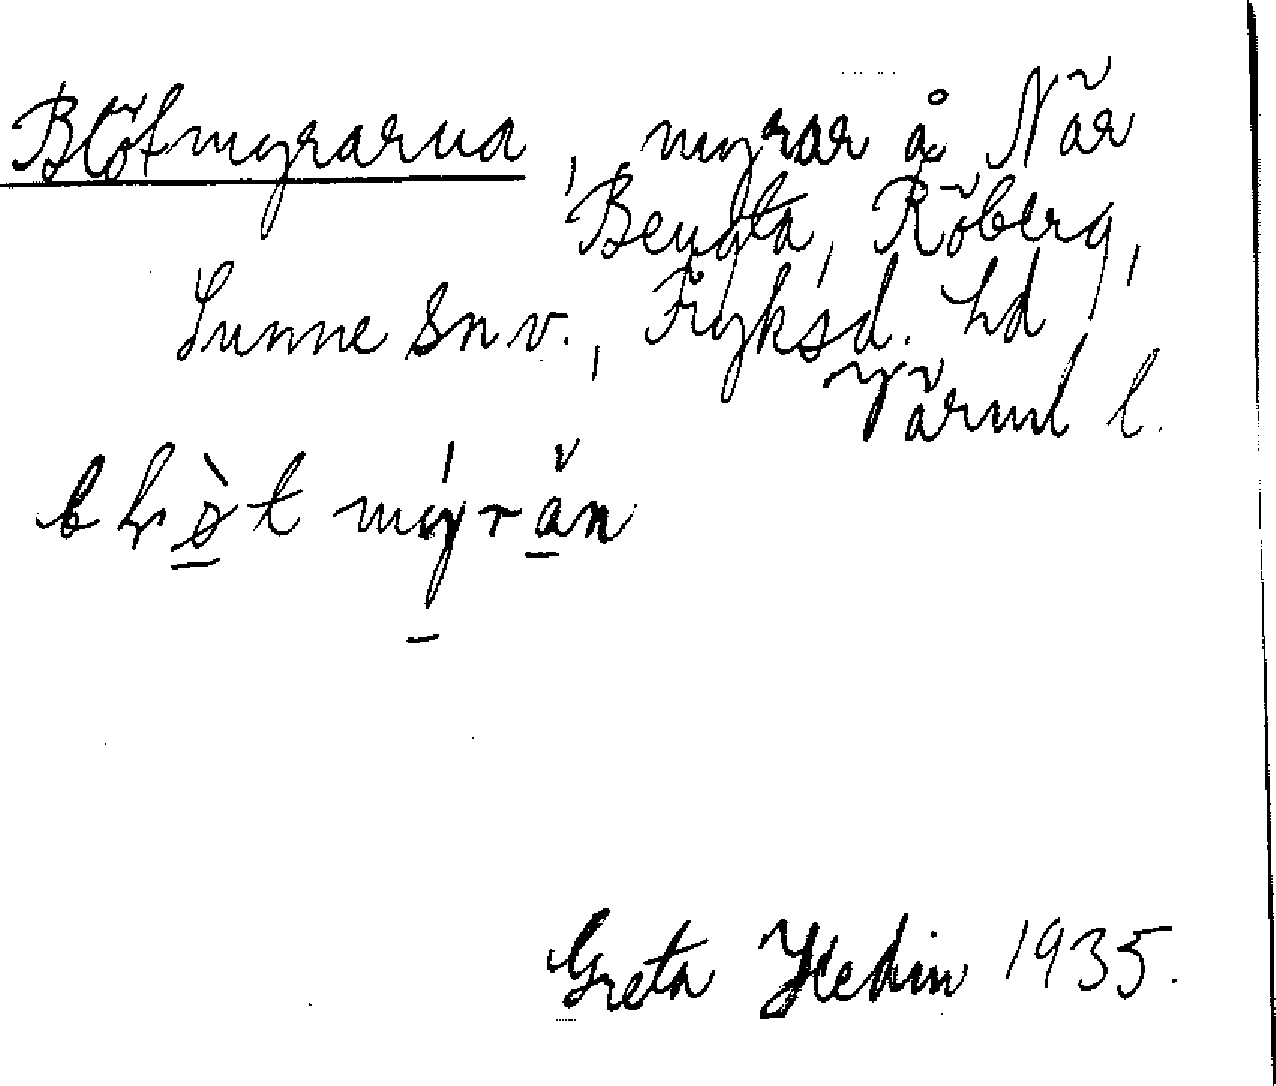 Blötmyrarna, myrar å När
Bengta, Röberg,
Sunne Sn v., Fryksd. hd
Värml l.
Greta Hedin 1935.